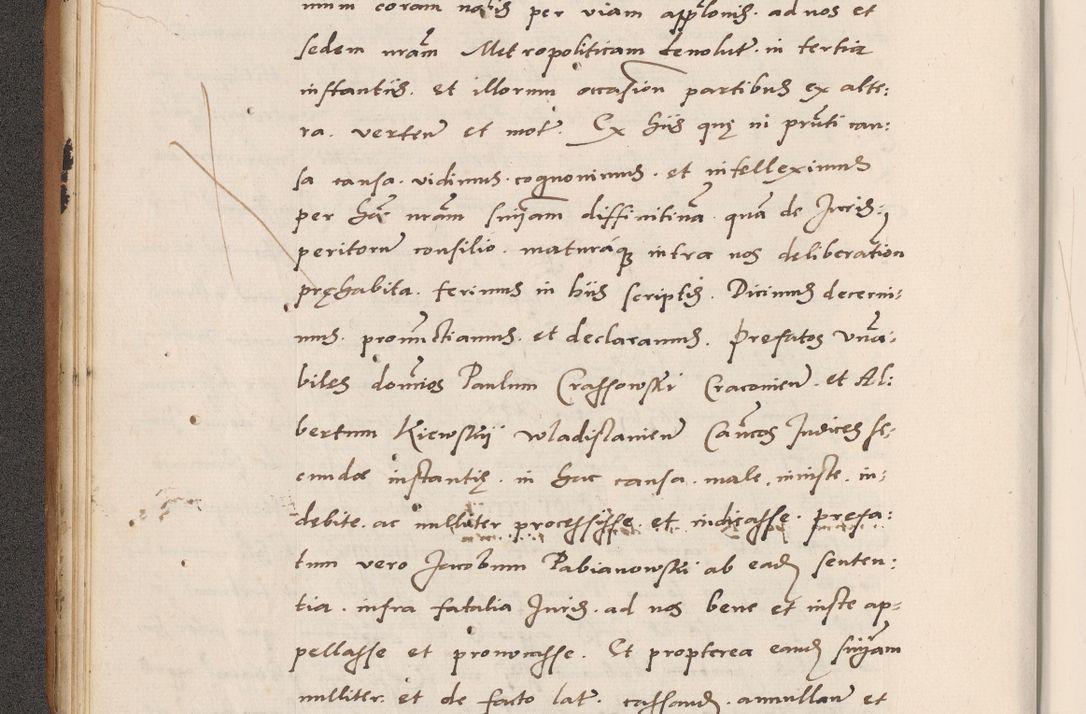 mum coram nobis per viam appłonis. ad nos et
sedem nrãm Metropoliticam devolut̃. in tertia
instantiis. et illorum occasion partibus ex alte:
ra. verteñ et mot̃. Ex hiis quę in prñti cau:
sa causa. vidimus. cognovimus. et intelleximus
per hãc nrãm sniam diffinitivã. quã de Juris:
peritorũ consilio. maturáque intra nos deliberatiõn
pręhabita. ferimus in hiis scriptis. Dicimus decerni:
mus. pronũctiamus. et declaramus. Prefatos vñã:
biles domĩos Paulum Crassowski Cracovieñ. et Al:
bertum Kiewskij wladislavieñ Cañcos Judices se:
cundæ instantię. in hac causa. male. iniuste. in:
debite. ac nulliter processisse. et iudicasse. prefa:
tum vero Jacobum Pabianowski ab eadẽ senten:
tia. infra fatalia Juris. ad nos bene et iuste ap:
pellasse et provocasse. Et propterea eandẽ sniam
nulliter. et de facto lat̃. cassandã. annullañ et